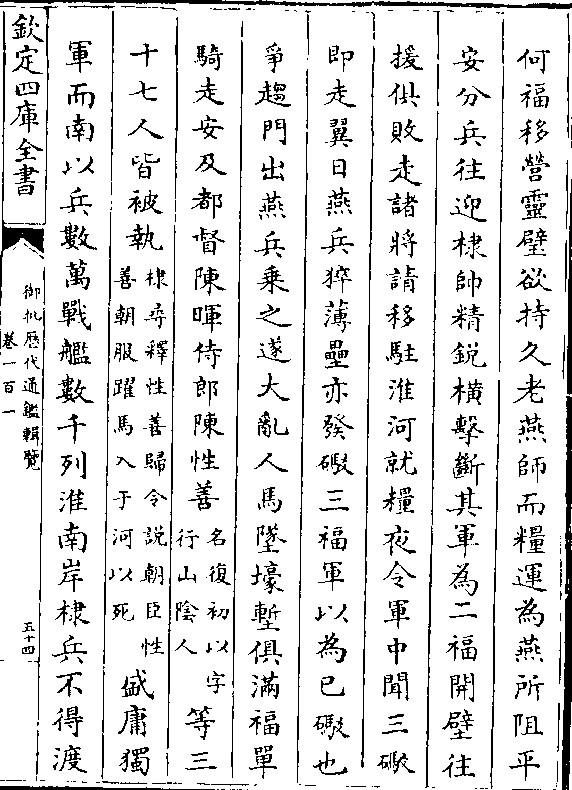 何福移營靈壁欲持久老燕師而糧運為燕所阻平
安分兵往迎棣帥精銳横擊斷其軍為二福開壁往
援俱敗走諸將請移駐淮河就糧夜令軍中聞三礟
即走翼日燕兵猝薄壘亦發礟三福軍以為已礟也
爭趨門出燕兵乗之遂大亂人馬墜壕塹俱滿福單
騎走安及都督陳暉侍郎陳性善名復初以字行山陰人等三
十七人皆被執棣尋釋性善歸令說朝臣性善朝服躍馬入于河以死盛庸獨
軍而南以兵數萬戰艦數千列淮南岸棣兵不得渡
欽定四庫全書
御批歷代通鑑輯覽
卷一百一
五十四